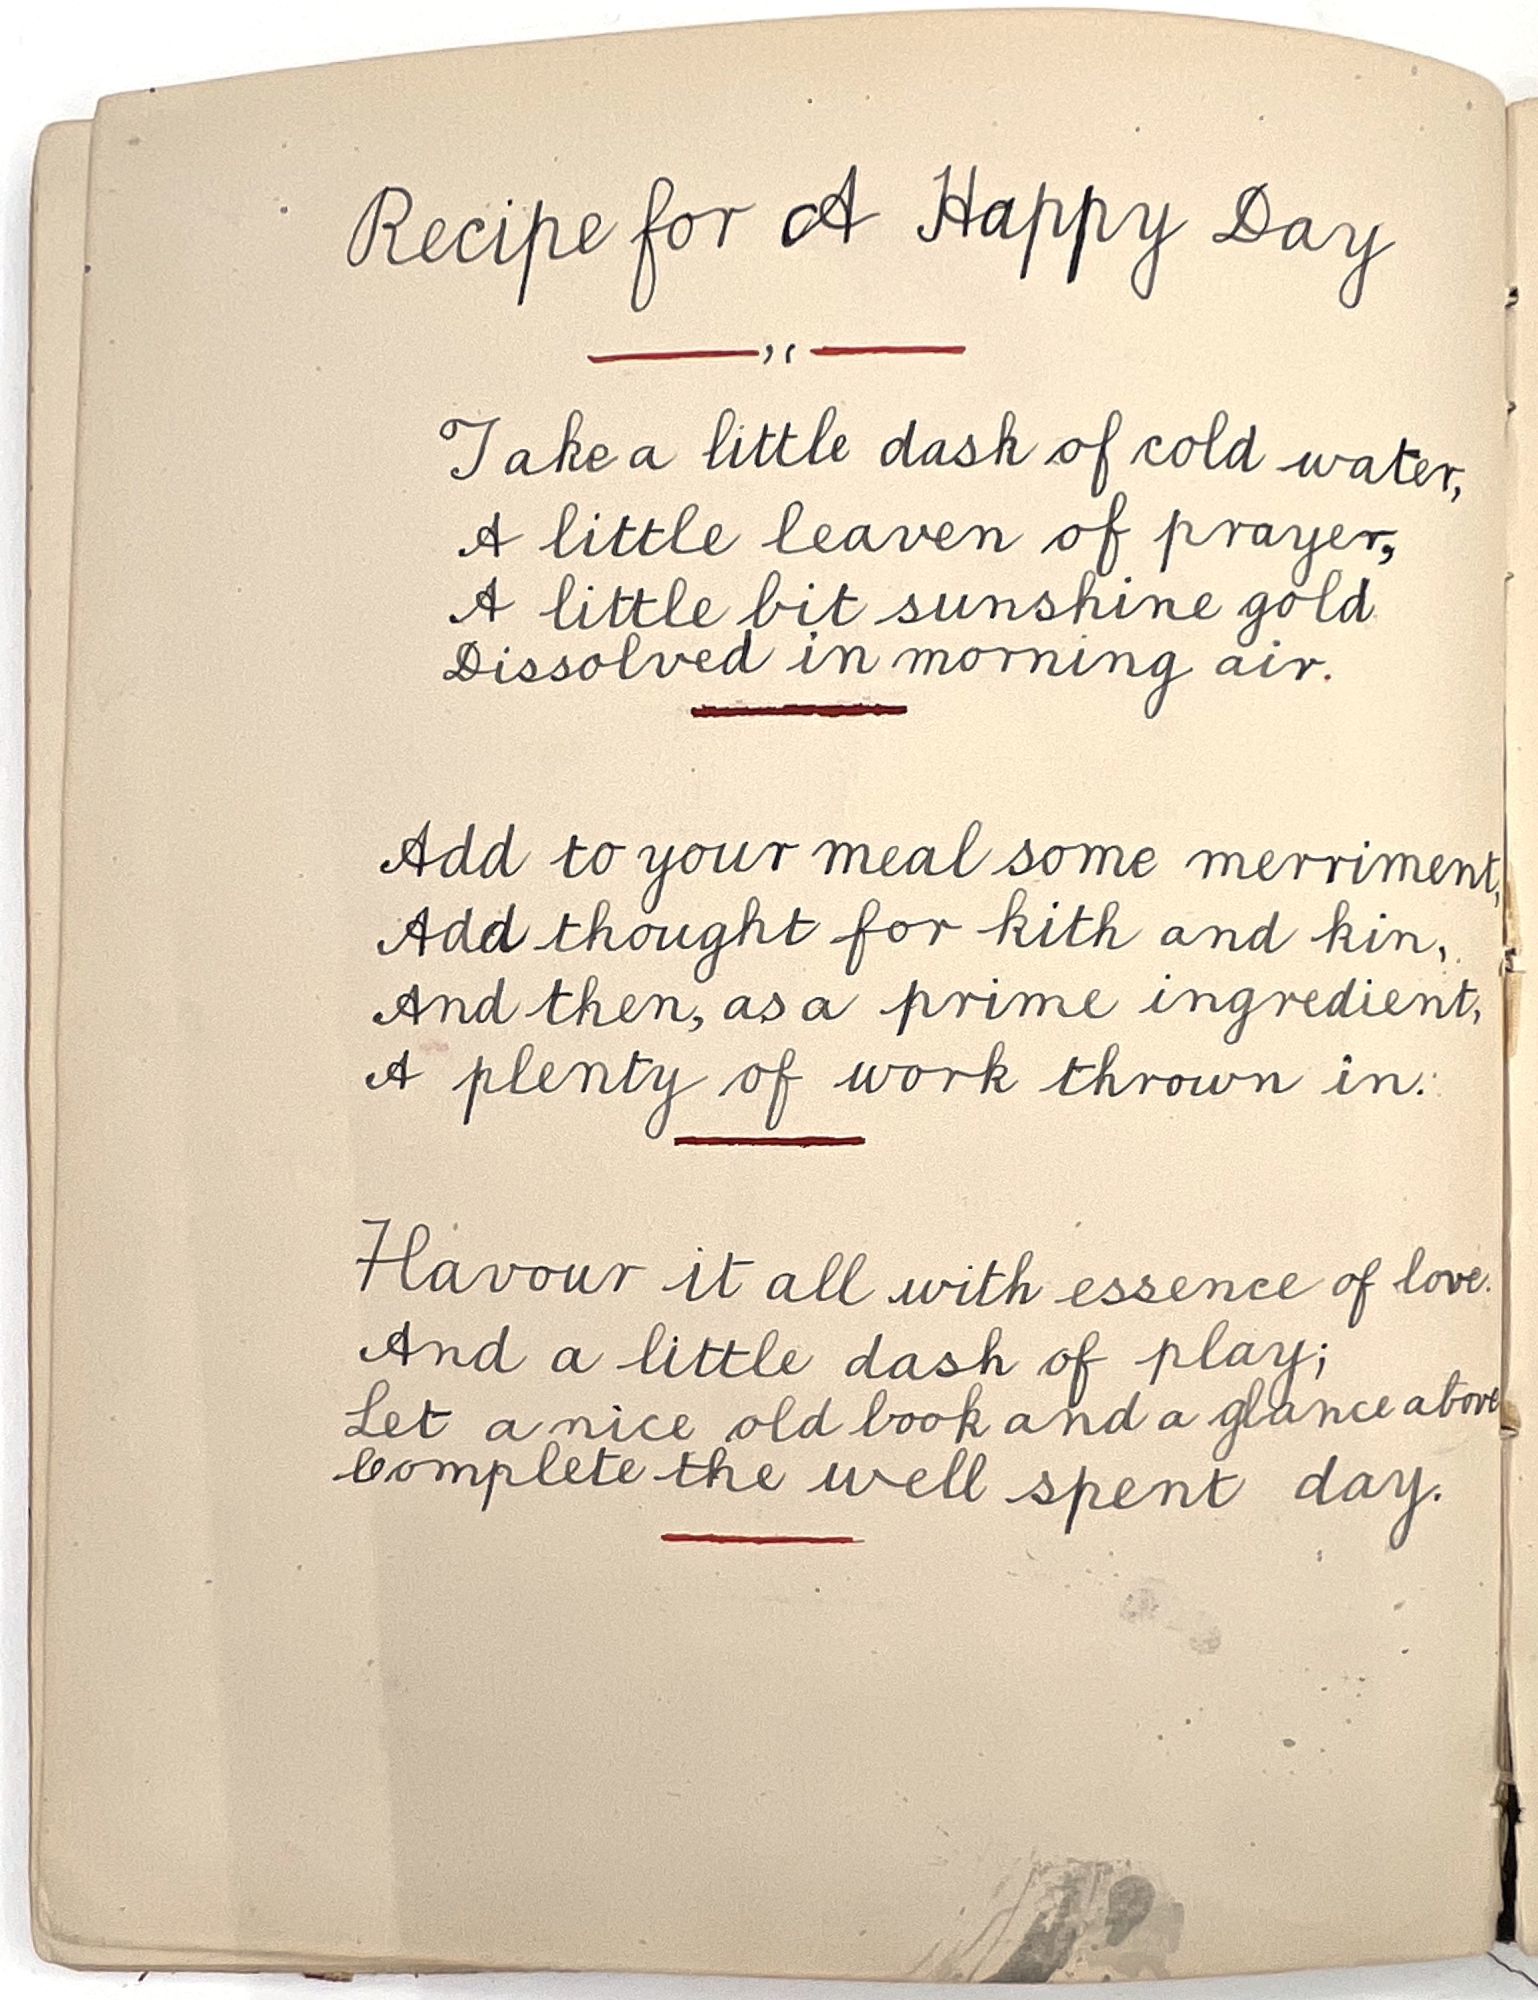 Recipe for A Happy Day
Take a little dash of cold water,
A little leaven of prayer,
A little bit sunshine gold
Dissolved in morning air.
Add to your meal some merriment,
Add thought for kith and kin,
And then, as a prime ingredient,
A plenty of work thrown in.
Flavour it all with essence of love.
And a little dash of play;
Let a nice old book and a glance above
Complete the well spent day.